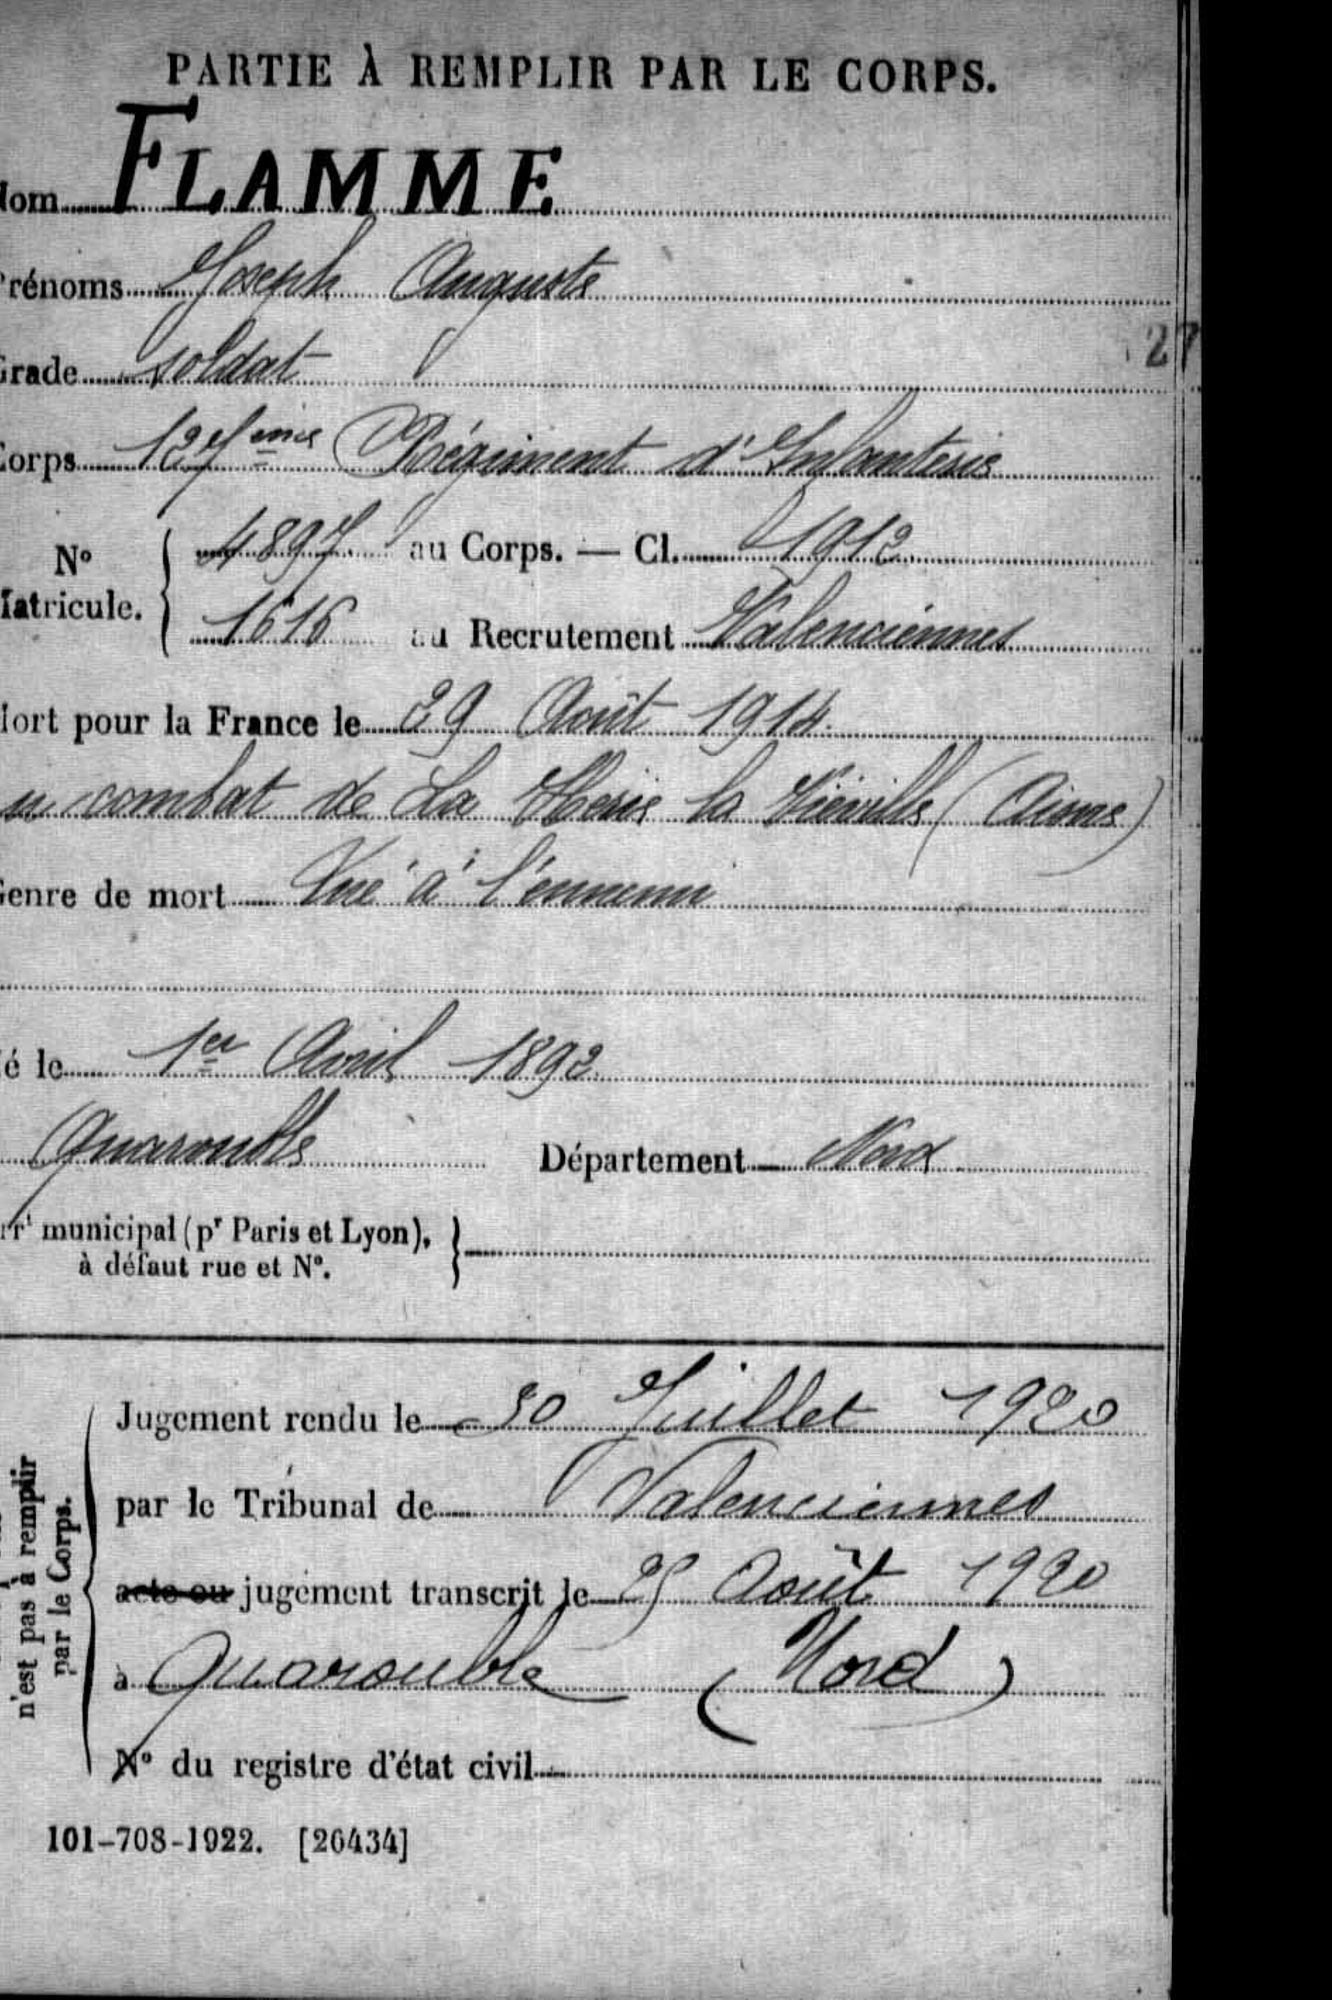 PARTIE À REMPLIR PAR LE CORPS.
Nom FLAMME
Prénoms Joseph Auguste
27
Grade soldat
Corps 127ème Régiment d'Infanterie
N° Matricule. { 4897 au Corps. — Cl. 1912
1616 au Recrutement Valenciennes
Mort pour la France le 29 Août 1914
au combat de La Hérie la Viéville (Aisne)
Genre de mort Tué à l'ennemi
Né le 1er Avril 1892
Quarouble Département Nord
Arrt municipal (pr Paris et Lyon),
à défaut rue et N°.
n'est pas à remplir
par le Corps.
Jugement rendu le 30 Juillet 1920
par le Tribunal de Valenciennes
acte ou jugement transcrit le 25 Août 1920
à Quarouble (Nord)
N° du registre d'état civil
101-708-1922. [26434]